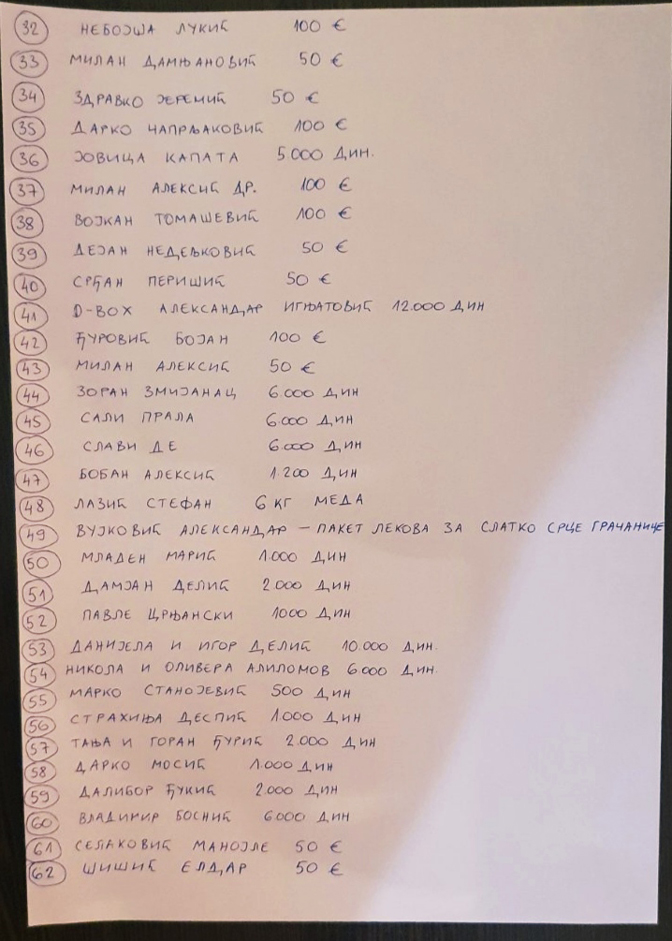 32 НЕБОЈША ЛУКИЋ 100 €
33 МИЛАН ДАМЊАНОВИЋ 50 €
34 ЗДРАВКО ЈЕРЕМИЋ 50 €
35 ДАРКО ЧАПРЉАКОВИЋ 100 €
36 ЈОВИЦА КАПАТА 5.000 ДИН.
37 МИЛАН АЛЕКСИЋ ДР. 100 €
38 ВОЈКАН ТОМАШЕВИЋ 100 €
39 ДЕЈАН НЕДЕЉКОВИЋ 50 €
40 СРЂАН ПЕРИШИЋ 50 €
41 D-BOX АЛЕКСАНДАР ИГЊАТОВИЋ 12.000 ДИН
42 ЂУРОВИЋ БОЈАН 100 €
43 МИЛАН АЛЕКСИЋ 50 €
44 ЗОРАН ЗМИЈАНАЦ 6.000 ДИН
45 САЛИ ПРАЛА 6.000 ДИН
46 СЛАВИ ДЕ 6.000 ДИН
47 БОБАН АЛЕКСИЋ 1.200 ДИН
48 ЛАЗИЋ СТЕФАН 6 КГ МЕДА
49 ВУЈКОВИЋ АЛЕКСАНДАР — ПАКЕТ ЛЕКОВА ЗА СЛАТКО СРЦЕ ГРАЧАНИЧЕ
50 МЛАДЕН МАРИЋ 1.000 ДИН
51 ДАМЈАН ДЕЛИЋ 2.000 ДИН
52 ПАВЛЕ ЦРЊАНСКИ 1000 ДИН
53 ДАНИЈЕЛА И ИГОР ДЕЛИЋ 10.000 ДИН.
54 НИКОЛА И ОЛИВЕРА АЛИЛОМОВ 6.000 ДИН.
55 МАРКО СТАНОЈЕВИЋ 500 ДИН
56 СТРАХИЊА ДЕСПИЋ 1.000 ДИН
57 ТАЊА И ГОРАН ЂУРИЋ 2.000 ДИН
58 ДАРКО МОСИЋ 1.000 ДИН
59 ДАЛИБОР ЂУКИЋ 2.000 ДИН
60 ВЛАДИМИР БОСНИЋ 6000 ДИН
61 СЕЛАКОВИЋ МАНОЈЛЕ 50 €
62 ШИШИЋ ЕЛДАР 50 €